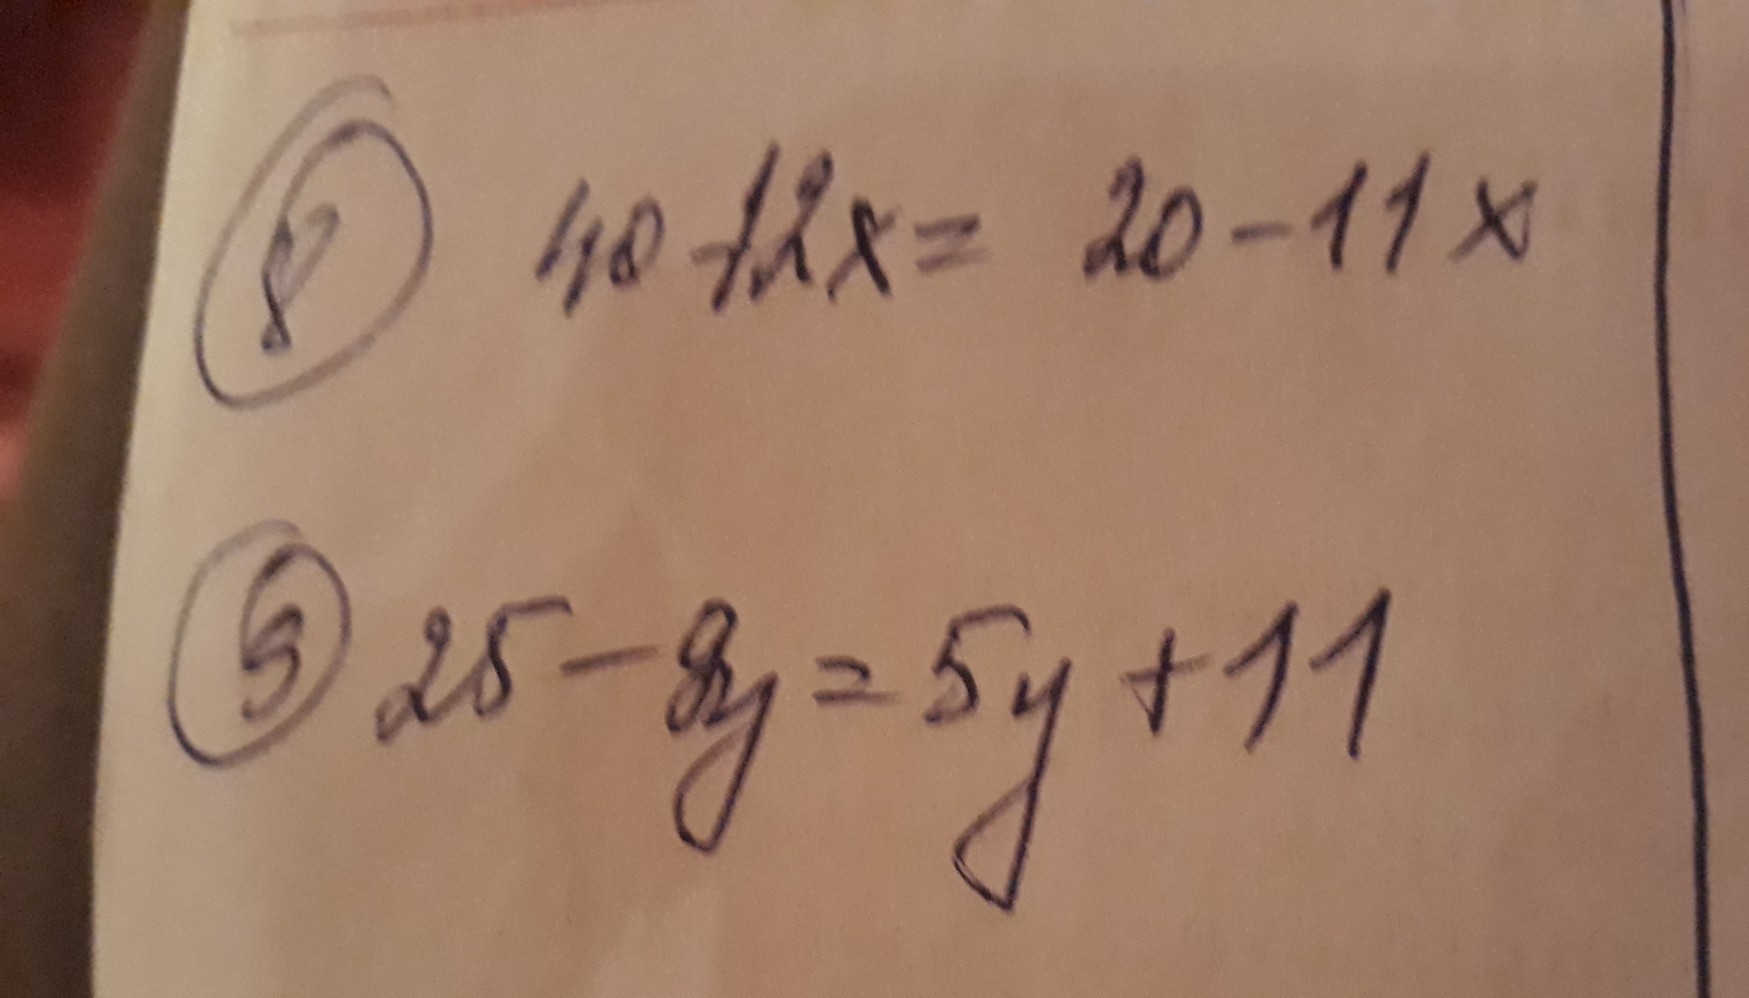 8 40-12x= 20-11x
9 25-9y=5y+11